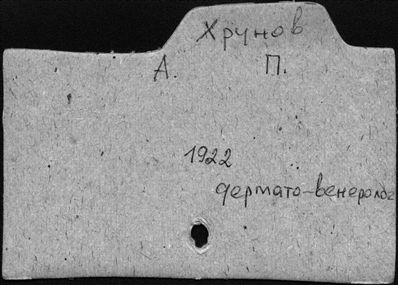 Хрунов
А. П.
1922
дермато-венеролог